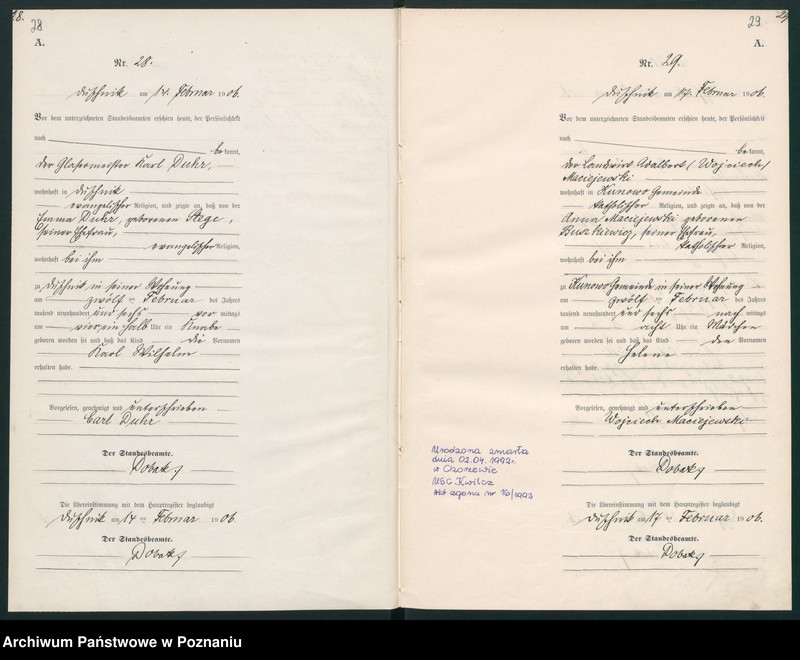 28.
28
A.
Nr. 28.
Duschnik am 14. Februar 1906.
Vor dem unterzeichneten Standesbeamten erschien heute, der Persönlichkeit
nach
bekannt,
der Glasermeister Karl Duhr,
wohnhaft in Duschnik
evangelischer Religion, und zeigte an, daß von der
Emma Duhr, geborenen Stege,
seiner Ehefrau,
evangelischer Religion,
wohnhaft bei ihm
zu Duschnik in seiner Wohnung
am zwölf ten Februar des Jahres
tausend neunhundert und sechs vor mittags
um vier ein halb Uhr ein Knabe
geboren worden sei und daß das Kind die Vornamen
Karl Wilhelm
erhalten habe.
Vorgelesen, genehmigt und unterschrieben
Carl Duhr
Der Standesbeamte.
Die Übereinstimmung mit dem Hauptregister beglaubigt
Duschnik am 14 ten Februar 1906.
Der Standesbeamte.
29
29
A.
Nr. 29.
Duschnik am 17. Februar 1906.
Vor dem unterzeichneten Standesbeamten erschien heute, der Persönlichkeit
nach
bekannt,
der Landwirt Adalbert (Wojciech)
Maciejewski
wohnhaft in Kunowo Gemeinde
katholischer Religion, und zeigte an, daß von der
Anna Maciejewski geborenen
Buszkiewicz, seiner Ehefrau,
katholischer Religion,
wohnhaft bei ihm
zu Kunowo Gemeinde in seiner Wohnung
am zwölf ten Februar des Jahres
tausend neunhundert und sechs nach mittags
um acht Uhr ein Mädchen
geboren worden sei und daß das Kind den Vornamen
Helene
erhalten habe.
Vorgelesen, genehmigt und unterschrieben
Wojciech Maciejewski
Der Standesbeamte.
Die Übereinstimmung mit dem Hauptregister beglaubigt
Duschnik am 17 ten Februar 1906.
Der Standesbeamte.
Urodzona zmarła
dnia 02.04.1992r.
w
USC Kwilcz
Akt zgonu nr 10/1992
Archiwum Państwowe w Poznaniu